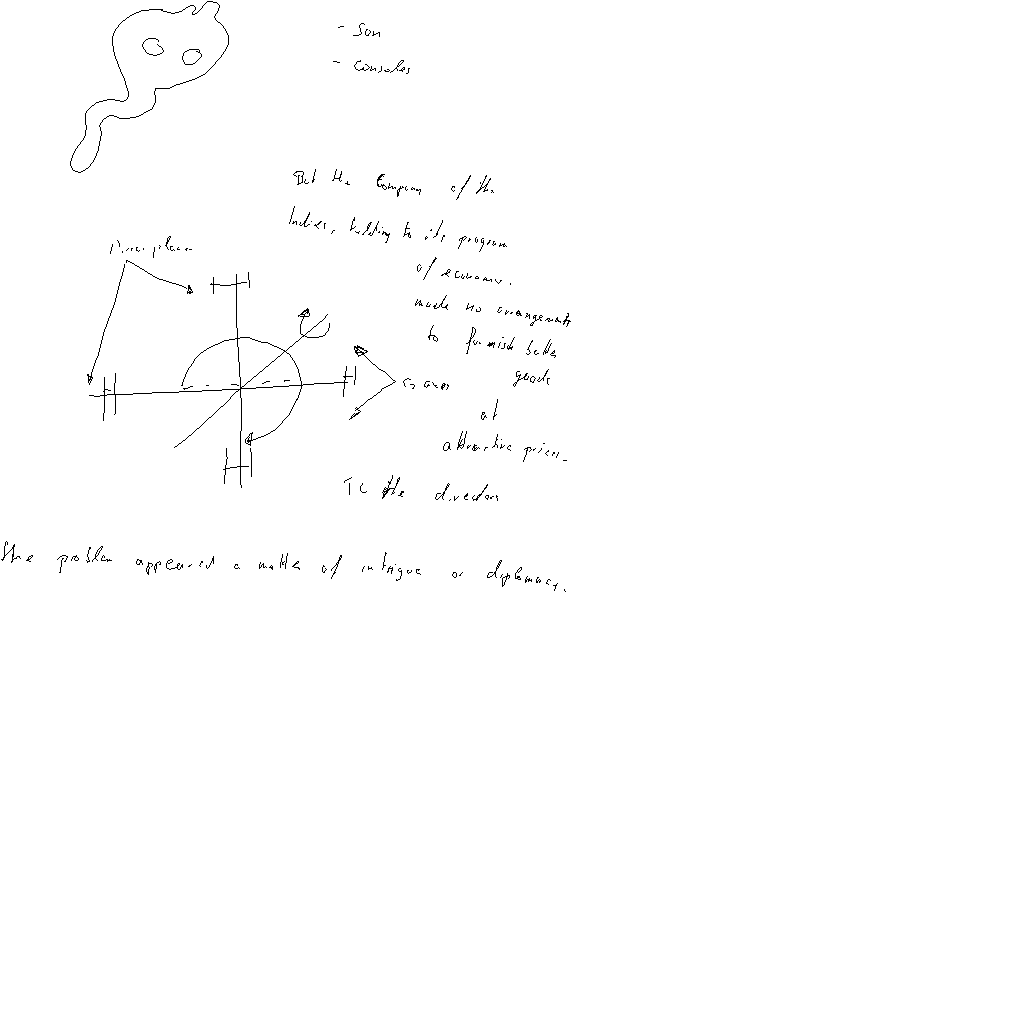 - Son
- consoles
But the Company of the
Indies, holding to its program
of economy.
made no arrangements
to furnish better
goods
at
attractive prices.
To the directors
the problem appeared a matter of intrigue or diplomacy.
Mirror planes
C2 axes